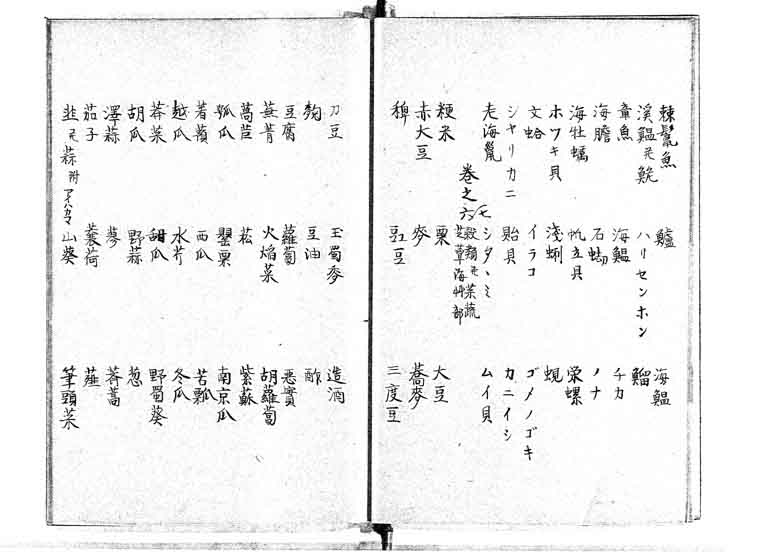 棘鬣魚 鱸 海鰮
溪鰛 ハリセンホン 鰡
章魚 海鰮 チカ
海膽 石蜐 ノナ
海牡蠣 帆立貝 栄螺
ホツキ貝 淺蜊 蜆
文蛤 イラコ ゴメノゴキ
シヤリカニ 貽貝 カニイシ
老海鼠 シタヽミ ムイ貝
巻之六七 穀類 菜蔬 芝蕈海艸部
粳米 粟 大豆
赤大豆 麥 蕎麥
稗 豇豆 三度豆
刀豆 玉蜀黍 造酒
麴 豆油 酢
豆腐 蘿蔔 悪實
蕪菁 火焔菜 胡蘿蔔
萵苣 菘 紫蘇
瓠瓜 罌粟 南京瓜
西瓜 苦瓢
越瓜 水芹 冬瓜
莕菜 甜瓜 野蜀葵
胡瓜 野蒜 葱
澤蒜 蓼 莃蒿
茄子 蘘荷 薤
韭 蒜 附 山葵 筆頭菜